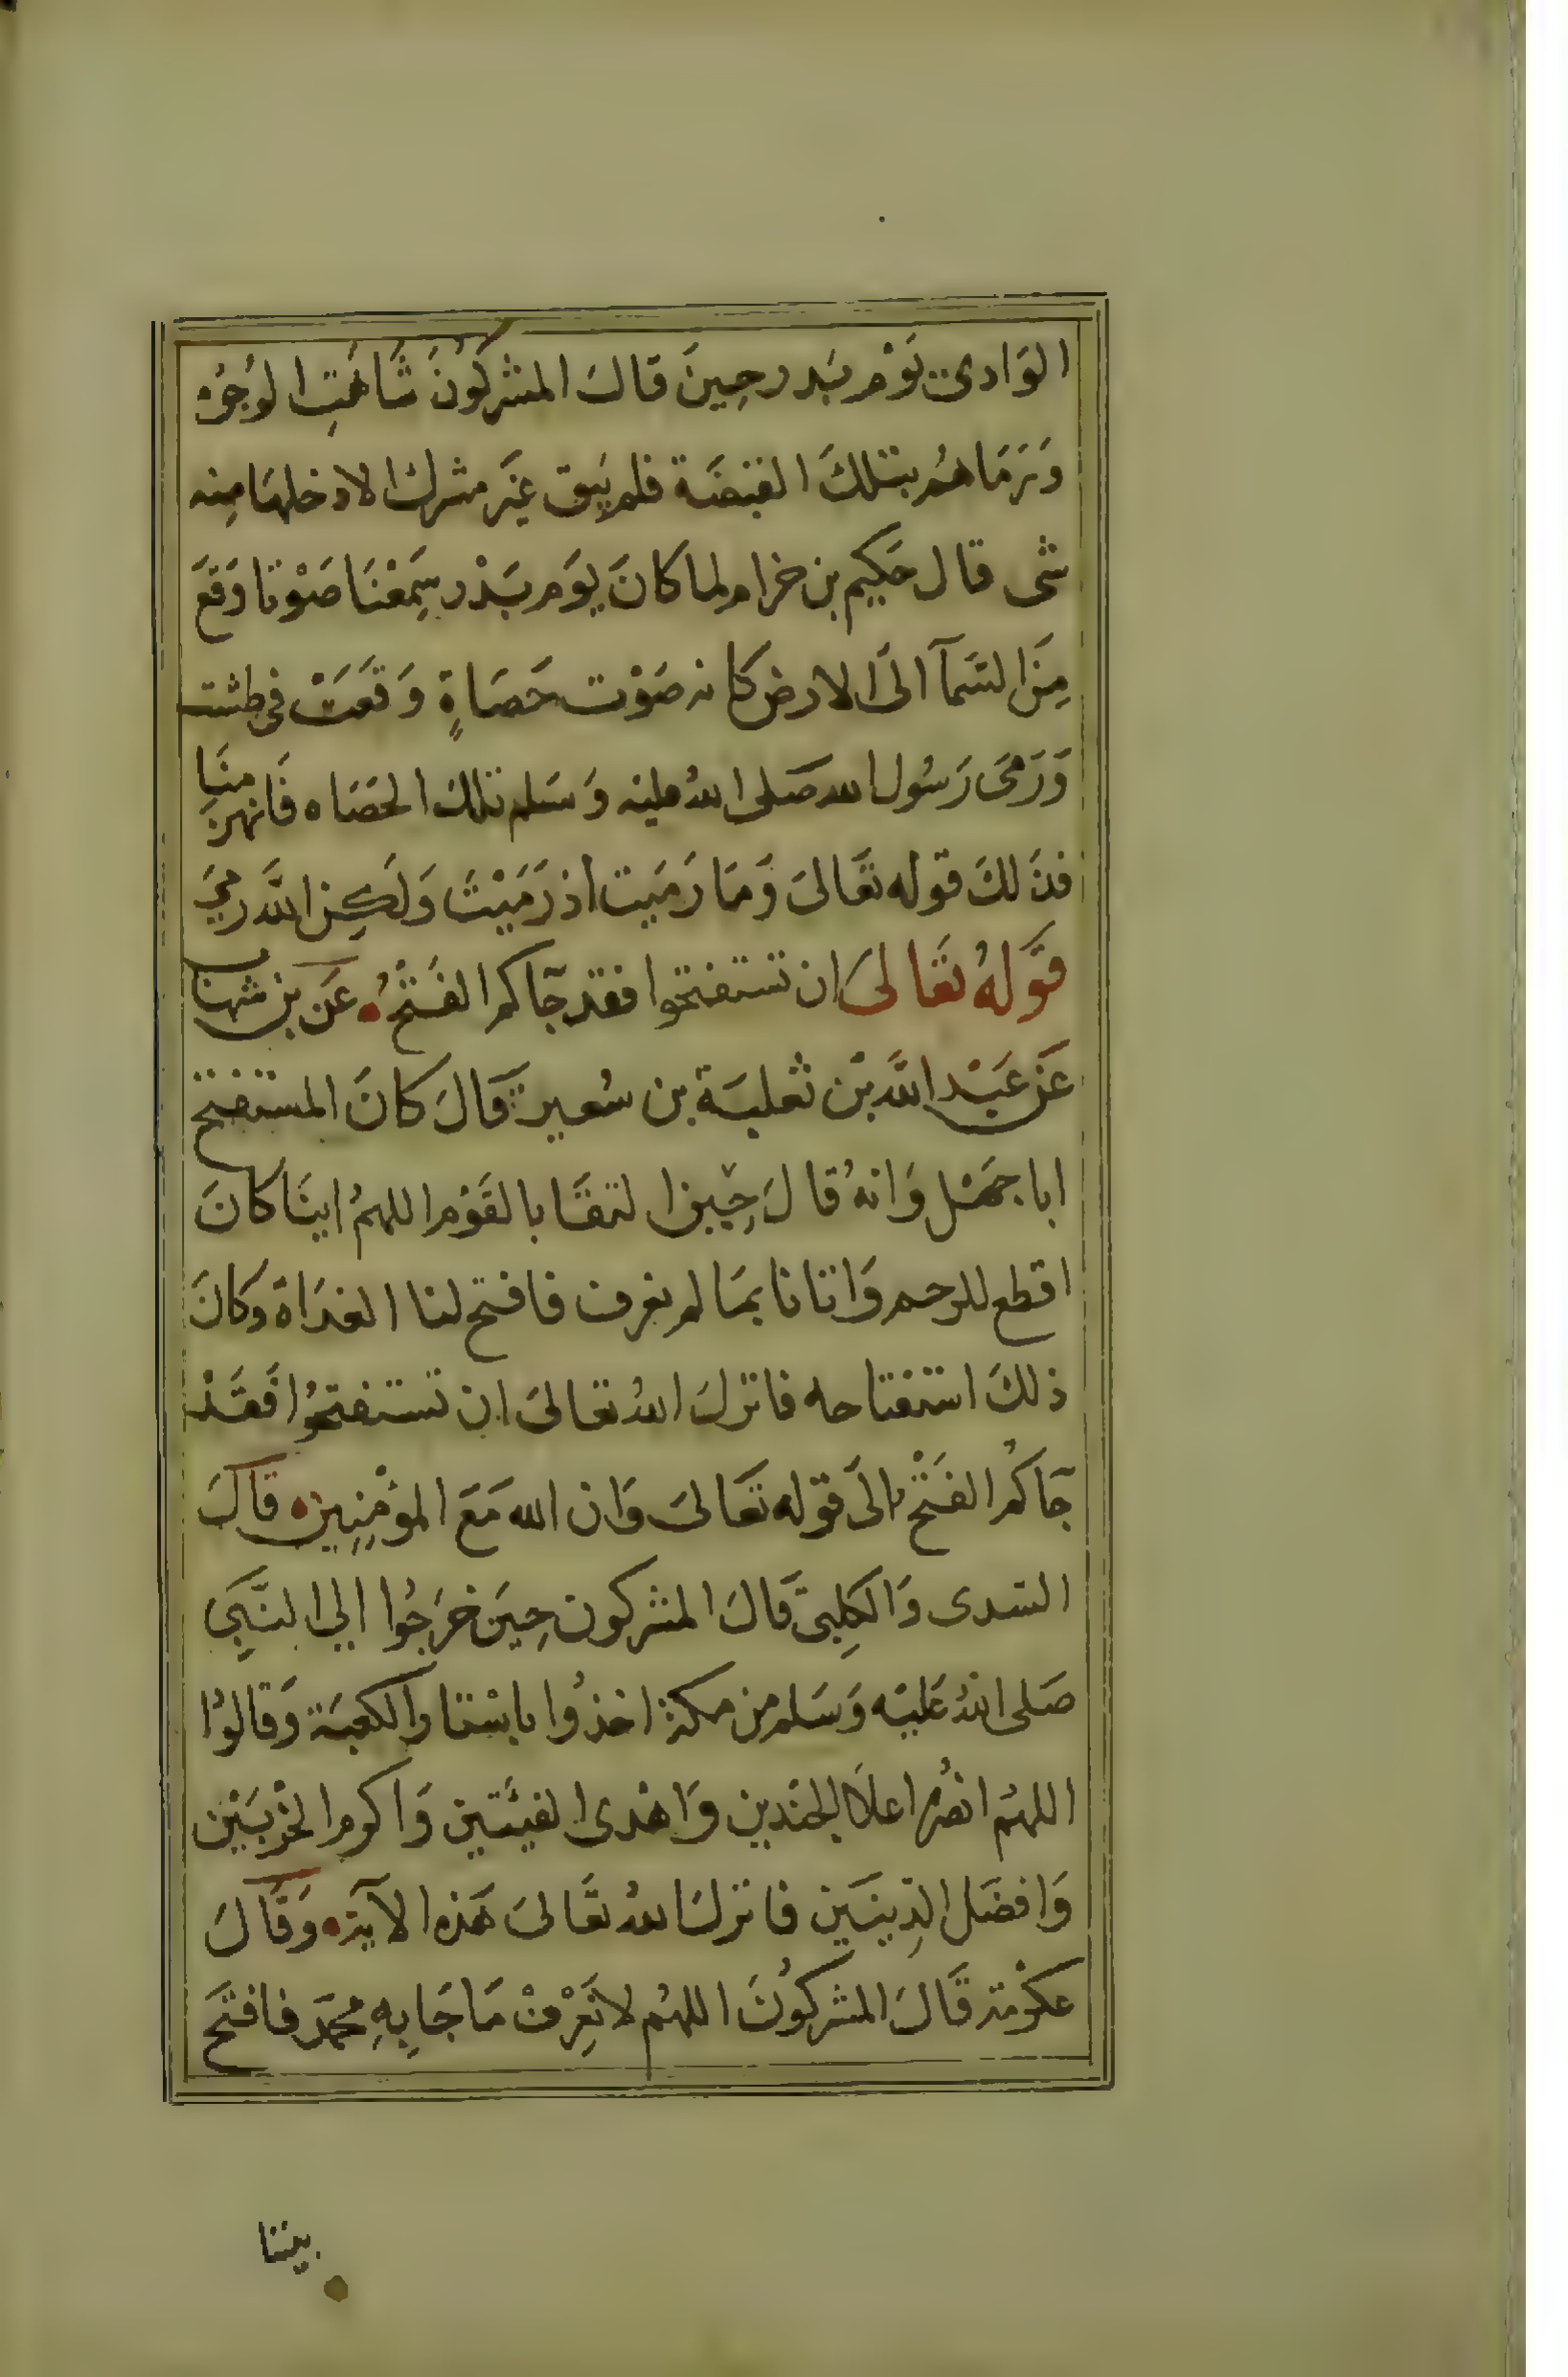 الوَادى يَوْم بَدر حِينَ قالَ المشركُونَ شَاهَتِ الوُجُوُه
وَرَمَاهُم بتلكَ القبضَة فلم يَبق عَيْن مشرك الا دخلهَا مِنه
شى قال حَكِيم بن خزام لما كانَ يوَم بَدْر سَمِعْنَا صَوْتا وَقعَ
مِنَ السَّمآ الىَ الارض كانه صَوْت حَصَاةٍ وَقعَتْ فى طشت
وَرَمىَ رَسُول الله صَلى اللهُ عليه وَسَلم تلك الحصَاه فَانهزمنَا
فذَلكَ قوله تعَالىَ وَمَا رَميَت اذ رَمَيْتَ وَلَكِن اللَّهَ رمىَ
قوَّلهُ تعَالىَ ان تستفتحوا فقد جآكم الفَتْحُ ه عَن بن شهاب
عَن عَبْد اللَّه بْن ثعلبَة بن سُعير قالَ كانَ المستفتح
ابا جَهْل وَانهُ قالَ حِين التقَا بالقَوْم اللهمُ اينَا كانَ
اقطع للرحم وَاتانا بمَا لم نعرف فافتح لنا الغدَاة وكانَ
ذلكَ استفتاحه فانزلَ اللهُ تعالىَ ان تستفتحُوا فَقَدْ
جآكمُ الفَتْح الىَ قوله تَعَالىَ وَان الله مَعَ المؤْمِنِين ه قالَ
السدى وَالكلِبى قالَ المشركون حِينَ خرَجُوا الي النَّبِي
صَلى اللهُ عَليْه وَسَلم من مكة اخذُوا باسْتار الكعبَة وَقالوُا
اللهُم انصُر اعلاَ الجندين وَاهْدى الفيئتين وَاكرم الحزْبَيْن
وَافضَل الدِينَين فانزلَ اللهُ تعَالىَ هَذه الآيه ه وَقالَ
عكرْمة قَالَ المشركوُنَ اللهُم لا نَعِرْفْ مَا جَا بِهِ مُحمَد فافتَح
بيننا